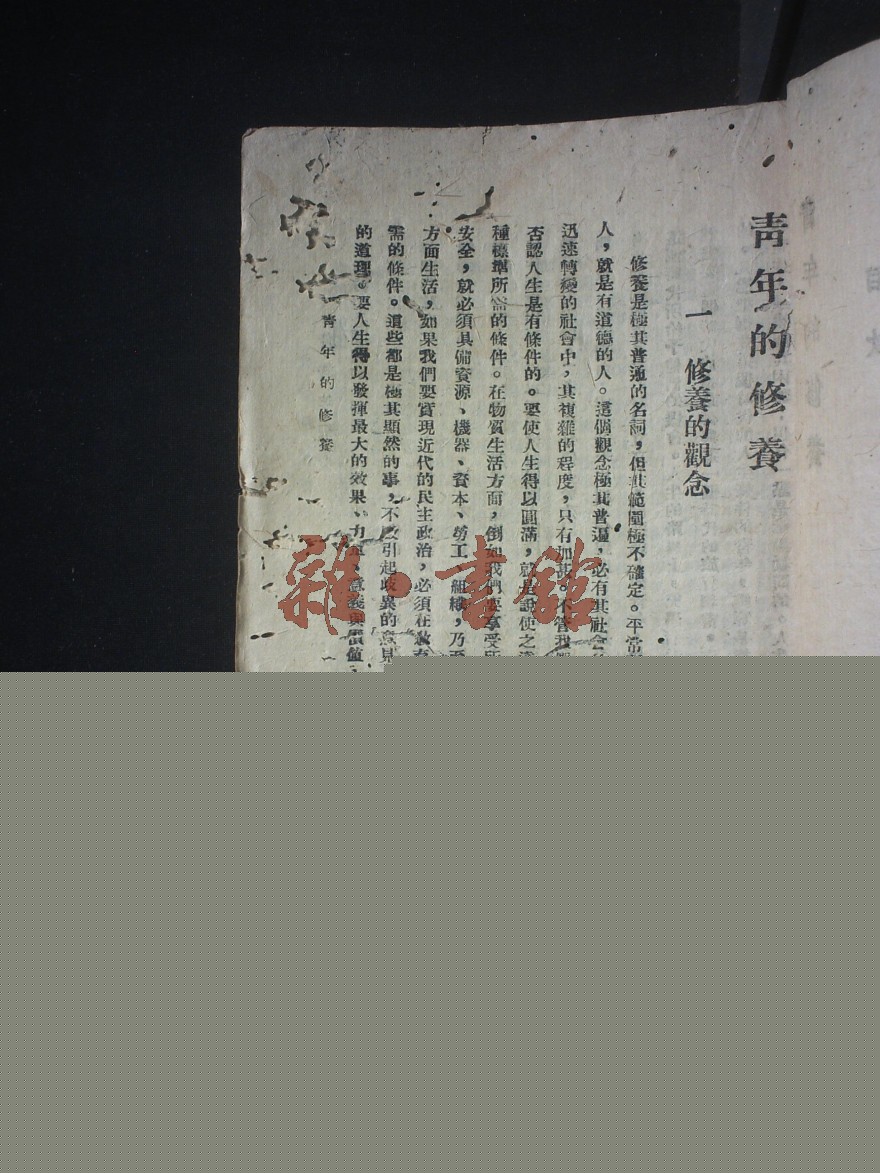 青年的修養
一 修養的觀念
修養是極其普通的名詞，但其範圍極不確定。平常
人，就是有道德的人。這個觀念極其普遍，必有其社會
迅速轉變的社會中，其複雜的程度，只有加甚。不管我
否認人生是有條件的。要使人生得以圓滿，就是說使之達
種標準所需的條件。在物質生活方面，例如我們要享受所
安全，就必須具備資源、機器、資本、勞工、組織，乃至
方面生活，如果我們要實現近代的民主政治，必須在教育
需的條件。這些都是極其顯然的事，不致引起歧異的意見
的道理。要人生得以發揮最大的效果、力量、意義與價值，
青年的修養
一
雜·書館